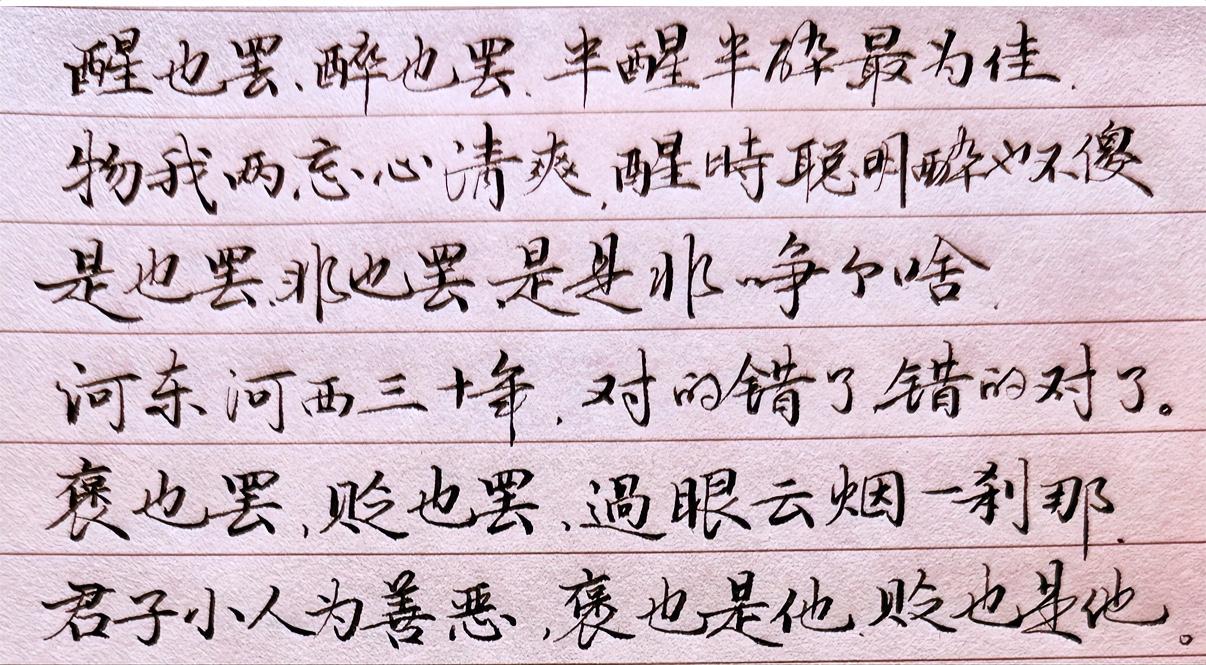 醒也罢、醉也罢、半醒半醉最为佳.
物我两忘心清爽,醒時聪明醉也不傻
是也罢,非也罢,是是非非争个啥.
河东河西三十年,对的错了,错的对了。
褒也罢,贬也罢,過眼云烟一刹那.
君子小人为善恶,褒也是他,贬也是他。